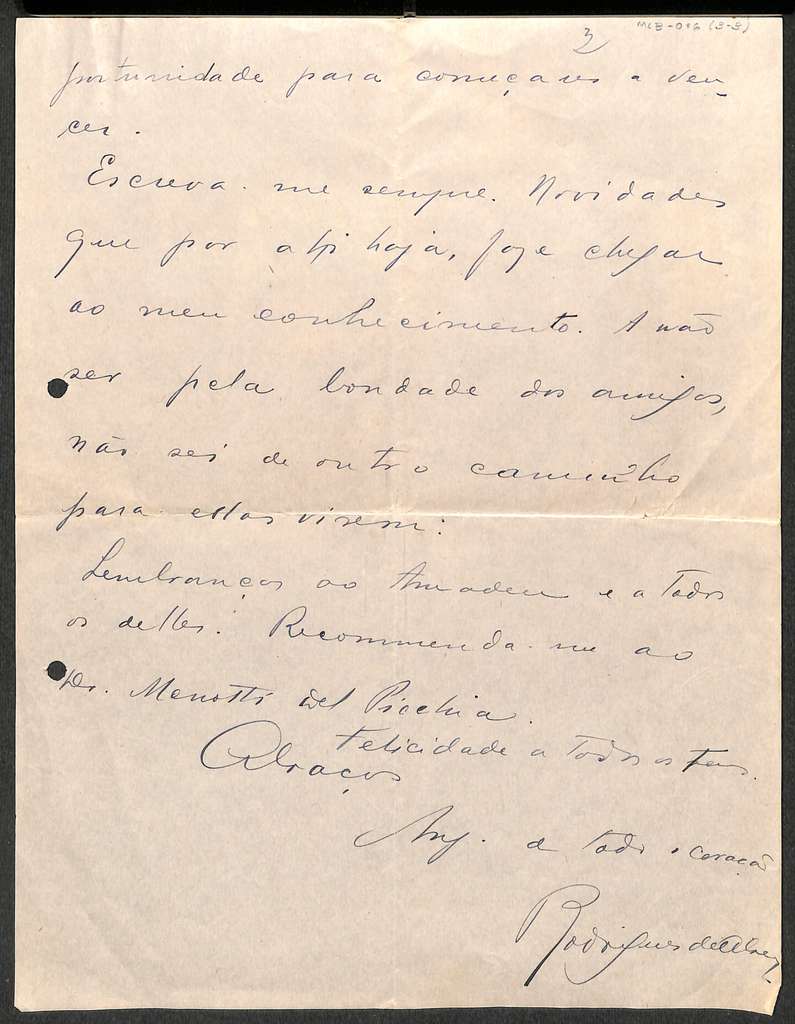 MLB-016 (3-3)
3
portunidade para começares a ven-
cer.
Escreva-me sempre. Novidades
que por ahi haja, faze chegar
ao meu conhecimento. A não
ser pela bondade dos amigos,
não sei de outro caminho
para ellas virem.
Lembranças ao Amadeu e a todos
os delles. Recommenda-me ao
Dr. Menotti del Picchia.
Felicidade a todos os teus.
Abraços
Am. de todo o coração
Rodrigues de Abreu